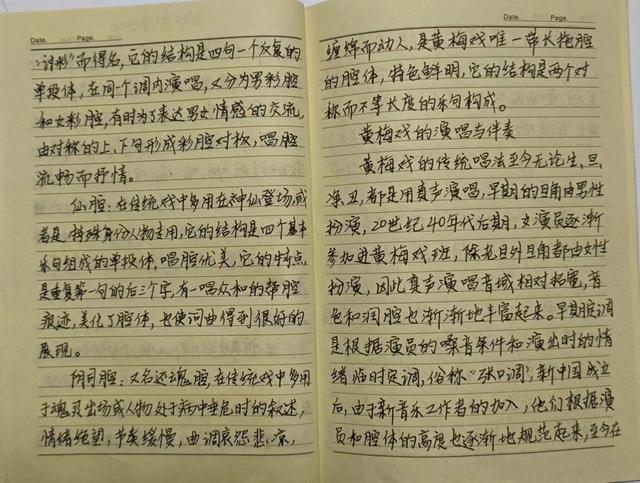 Date.	Page.
“讨彩”而得名,它的结构是四句一个反复的
单段体,在同个调内演唱,又分为男彩腔
和女彩腔,有时为了表达男女情感的交流,
由对称的上、下句形成彩腔对板,唱腔
流畅而抒情。
仙腔:在传统戏中多用在神仙登场,或
者是特殊身份人物专用,它的结构是四个基本
乐句组成的单段体,唱腔优美,它的特点
是重复第一句的后三个字,有一唱众和的帮腔
痕迹,美化了腔体,也使词曲得到很好的
展现。
阴司腔:又名还魂腔,在传统戏中多用
于魂灵出场或人物处于病中垂危时的叙述,
情绪绝望,节奏缓慢,曲调哀怨悲凉,
Date.	Page.
缠绵而动人,是黄梅戏唯一带长拖腔
的腔体,特色鲜明,它的结构是两个对
称而不等长度的乐句构成。
黄梅戏的演唱与伴奏
黄梅戏的传统唱法至今无论生、旦、
净、丑,都是用真声演唱,早期的旦角由男性
扮演,20世纪40年代后期,女演员逐渐
参加进黄梅戏班,除老旦外旦角都由女性
扮演,因此真声演唱音域相对拓宽,音
色和润腔也渐渐地丰富起来。早期腔调
是根据演员的嗓音条件和演出时的情
绪临时定调,俗称“张口调”,新中国成立
后,由于新音乐工作者的加入,他们根据演
员和腔体的高度也逐渐地规范起来,至今在